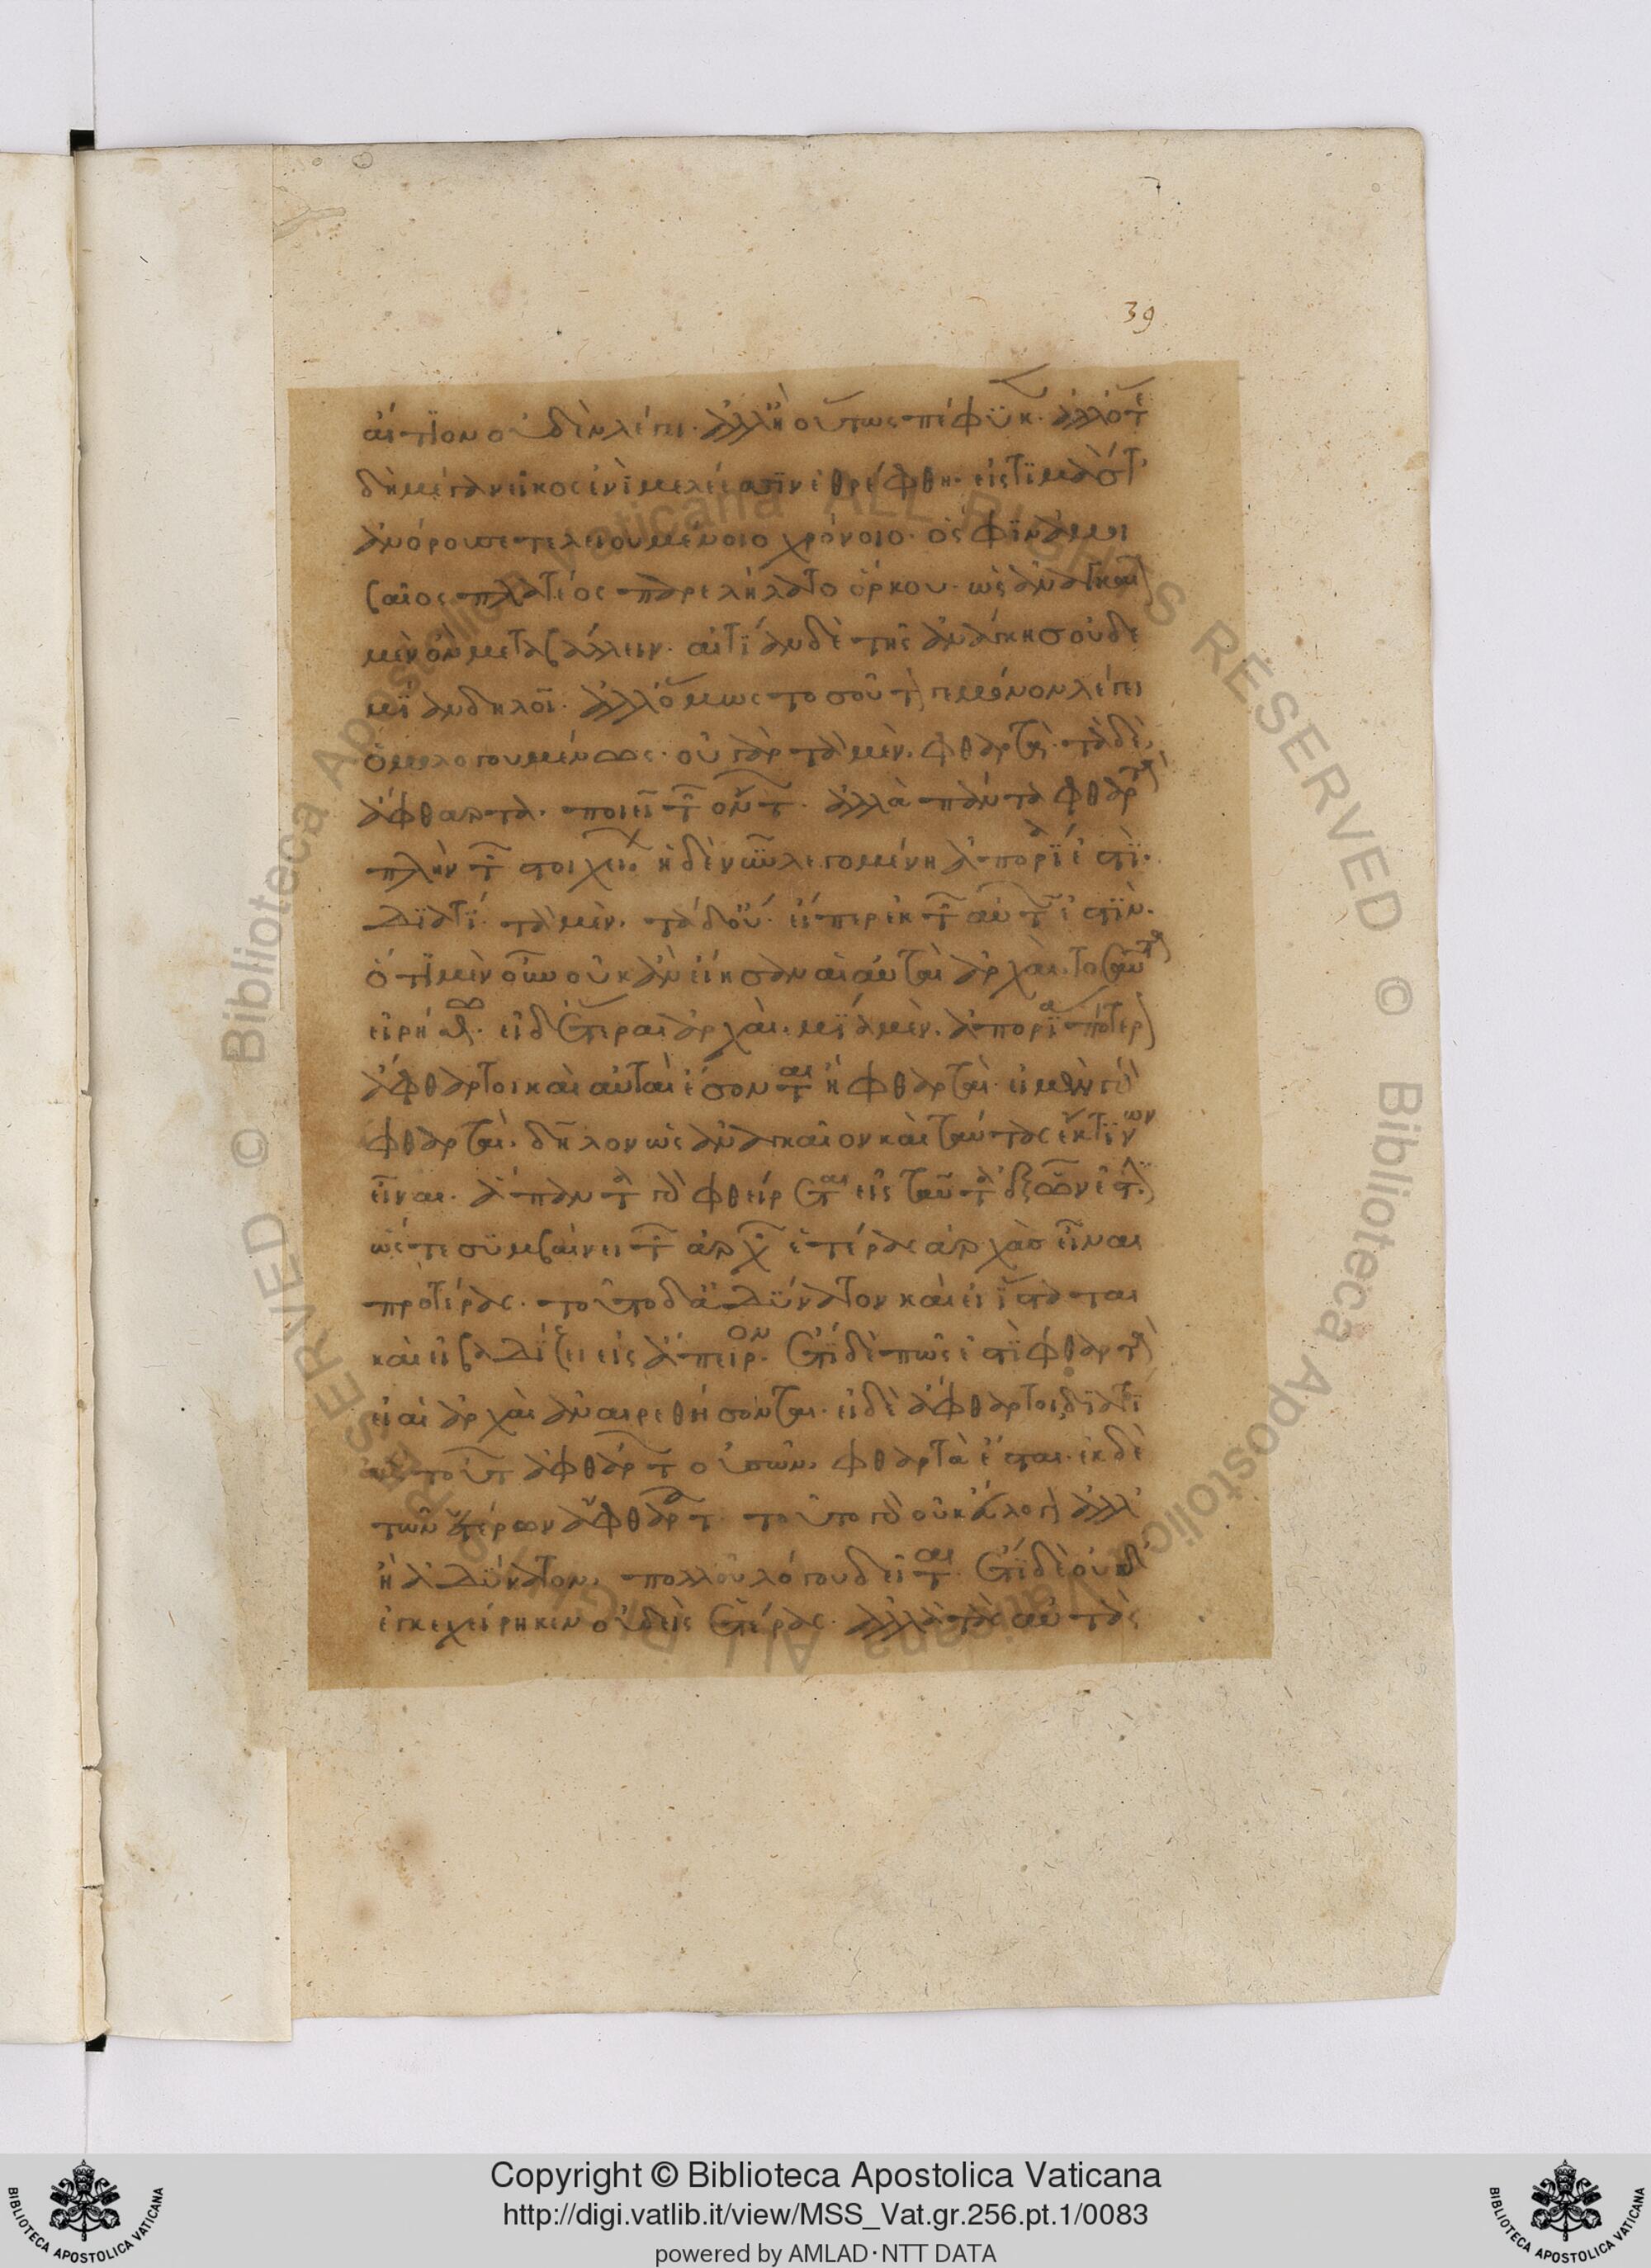 39
αἴτιον οὐδὲν λέγει· ἀλλ' ἢ οὕτως πέφυκ· ἀλλ' ὅτε
δὴ μέγα νεῖκος ἐνὶ μελέεσσιν ἐθρέφθη· εἰς τιμάς τ'
ἀνόρουσε τελειουμένοιο χρόνοιο· ὅς φιν ἀμοι
βαῖος πλατέος παρελήλατο ὅρκου· ὡς ἀναγκαῖ
μὲν ὂν μεταβάλλειν· αἰτίαν δὲ τῆς ἀνάγκης οὐδε
μίαν δηλοῖ· ἀλλ' ὅμως τοσοῦτόν γε μόνον λέγει
ὁμολογουμένως· οὐ γὰρ τὰ μὲν φθαρτὰ· τὰ δὲ
ἄφθαρτα· ποιεῖ τῶν ὄντων· ἀλλὰ πάντα φθαρτὰ
πλὴν τῶν στοιχείων· ἡ δὲ νῦν λεγομένη ἀπορία ἐστὶ·
διατί· τὰ μὲν· τὰ δ' οὔ· εἴπερ ἐκ τῶν αὐτῶν ἐστὶν·
ὅτι μὲν οὖν οὐκ ἂν εἴησαν αἱ αὐταὶ ἀρχαὶ· τοσαῦτα
εἰρήσθω· εἰ δ' ἕτεραι ἀρχαὶ· μία μὲν ἀπορία πότερον
ἄφθαρτοι καὶ αὗται ἔσονται ἢ φθαρταὶ· εἰ μὲν γὰρ
φθαρταὶ· δῆλον ὡς ἀναγκαῖον καὶ ταύτας ἔκ τινων
εἶναι· ἅπαντα γὰρ φθείρεται εἰς ταῦτα ἐξ ὧν ἐστὶν
ὥστε συμβαίνει τῶν ἀρχῶν ἑτέρας ἀρχὰς εἶναι
προτέρας· τοῦτο δ' ἀδύνατον καὶ εἰ ἵσταται
καὶ εἰ βαδίζει εἰς ἄπειρον· ἔτι δὲ πῶς ἐστὶ φθαρτὰ
εἰ αἱ ἀρχαὶ ἀναιρεθήσονται· εἰ δὲ ἄφθαρτοι διατί
τούτων ἀφθάρτων οὐσῶν· φθαρτὰ ἔσται· ἐκ δὲ
τῶν ἑτέρων ἄφθαρτα· τοῦτο γὰρ οὐκ εὔλογον ἀλλ'
ἢ ἀδύνατον· πολλοῦ λόγου δεῖται· ἔτι δὲ οὐδ'
ἐγκεχείρηκεν οὐδεὶς ἑτέρας· ἀλλὰ τὰς αὐτὰς
Copyright © Biblioteca Apostolica Vaticana
http://digi.vatlib.it/view/MSS_Vat.gr.256.pt.1/0083
powered by AMLAD·NTT DATA